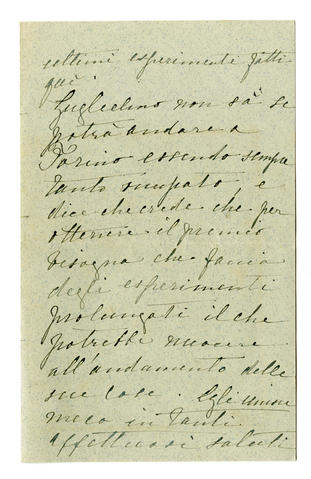 ultimi esperimenti fatti
quà.
Guglielmo non sà se
potrà andare a
Torino essendo sempre
tanto occupato, e
dice che crede che per
ottenere il premio
bisogna che faccia
degli esperimenti
prolungati il che
potrebbe nuocere
all'andamento delle
sue cose. Egli unisce
meco in tanti
affettuosi saluti